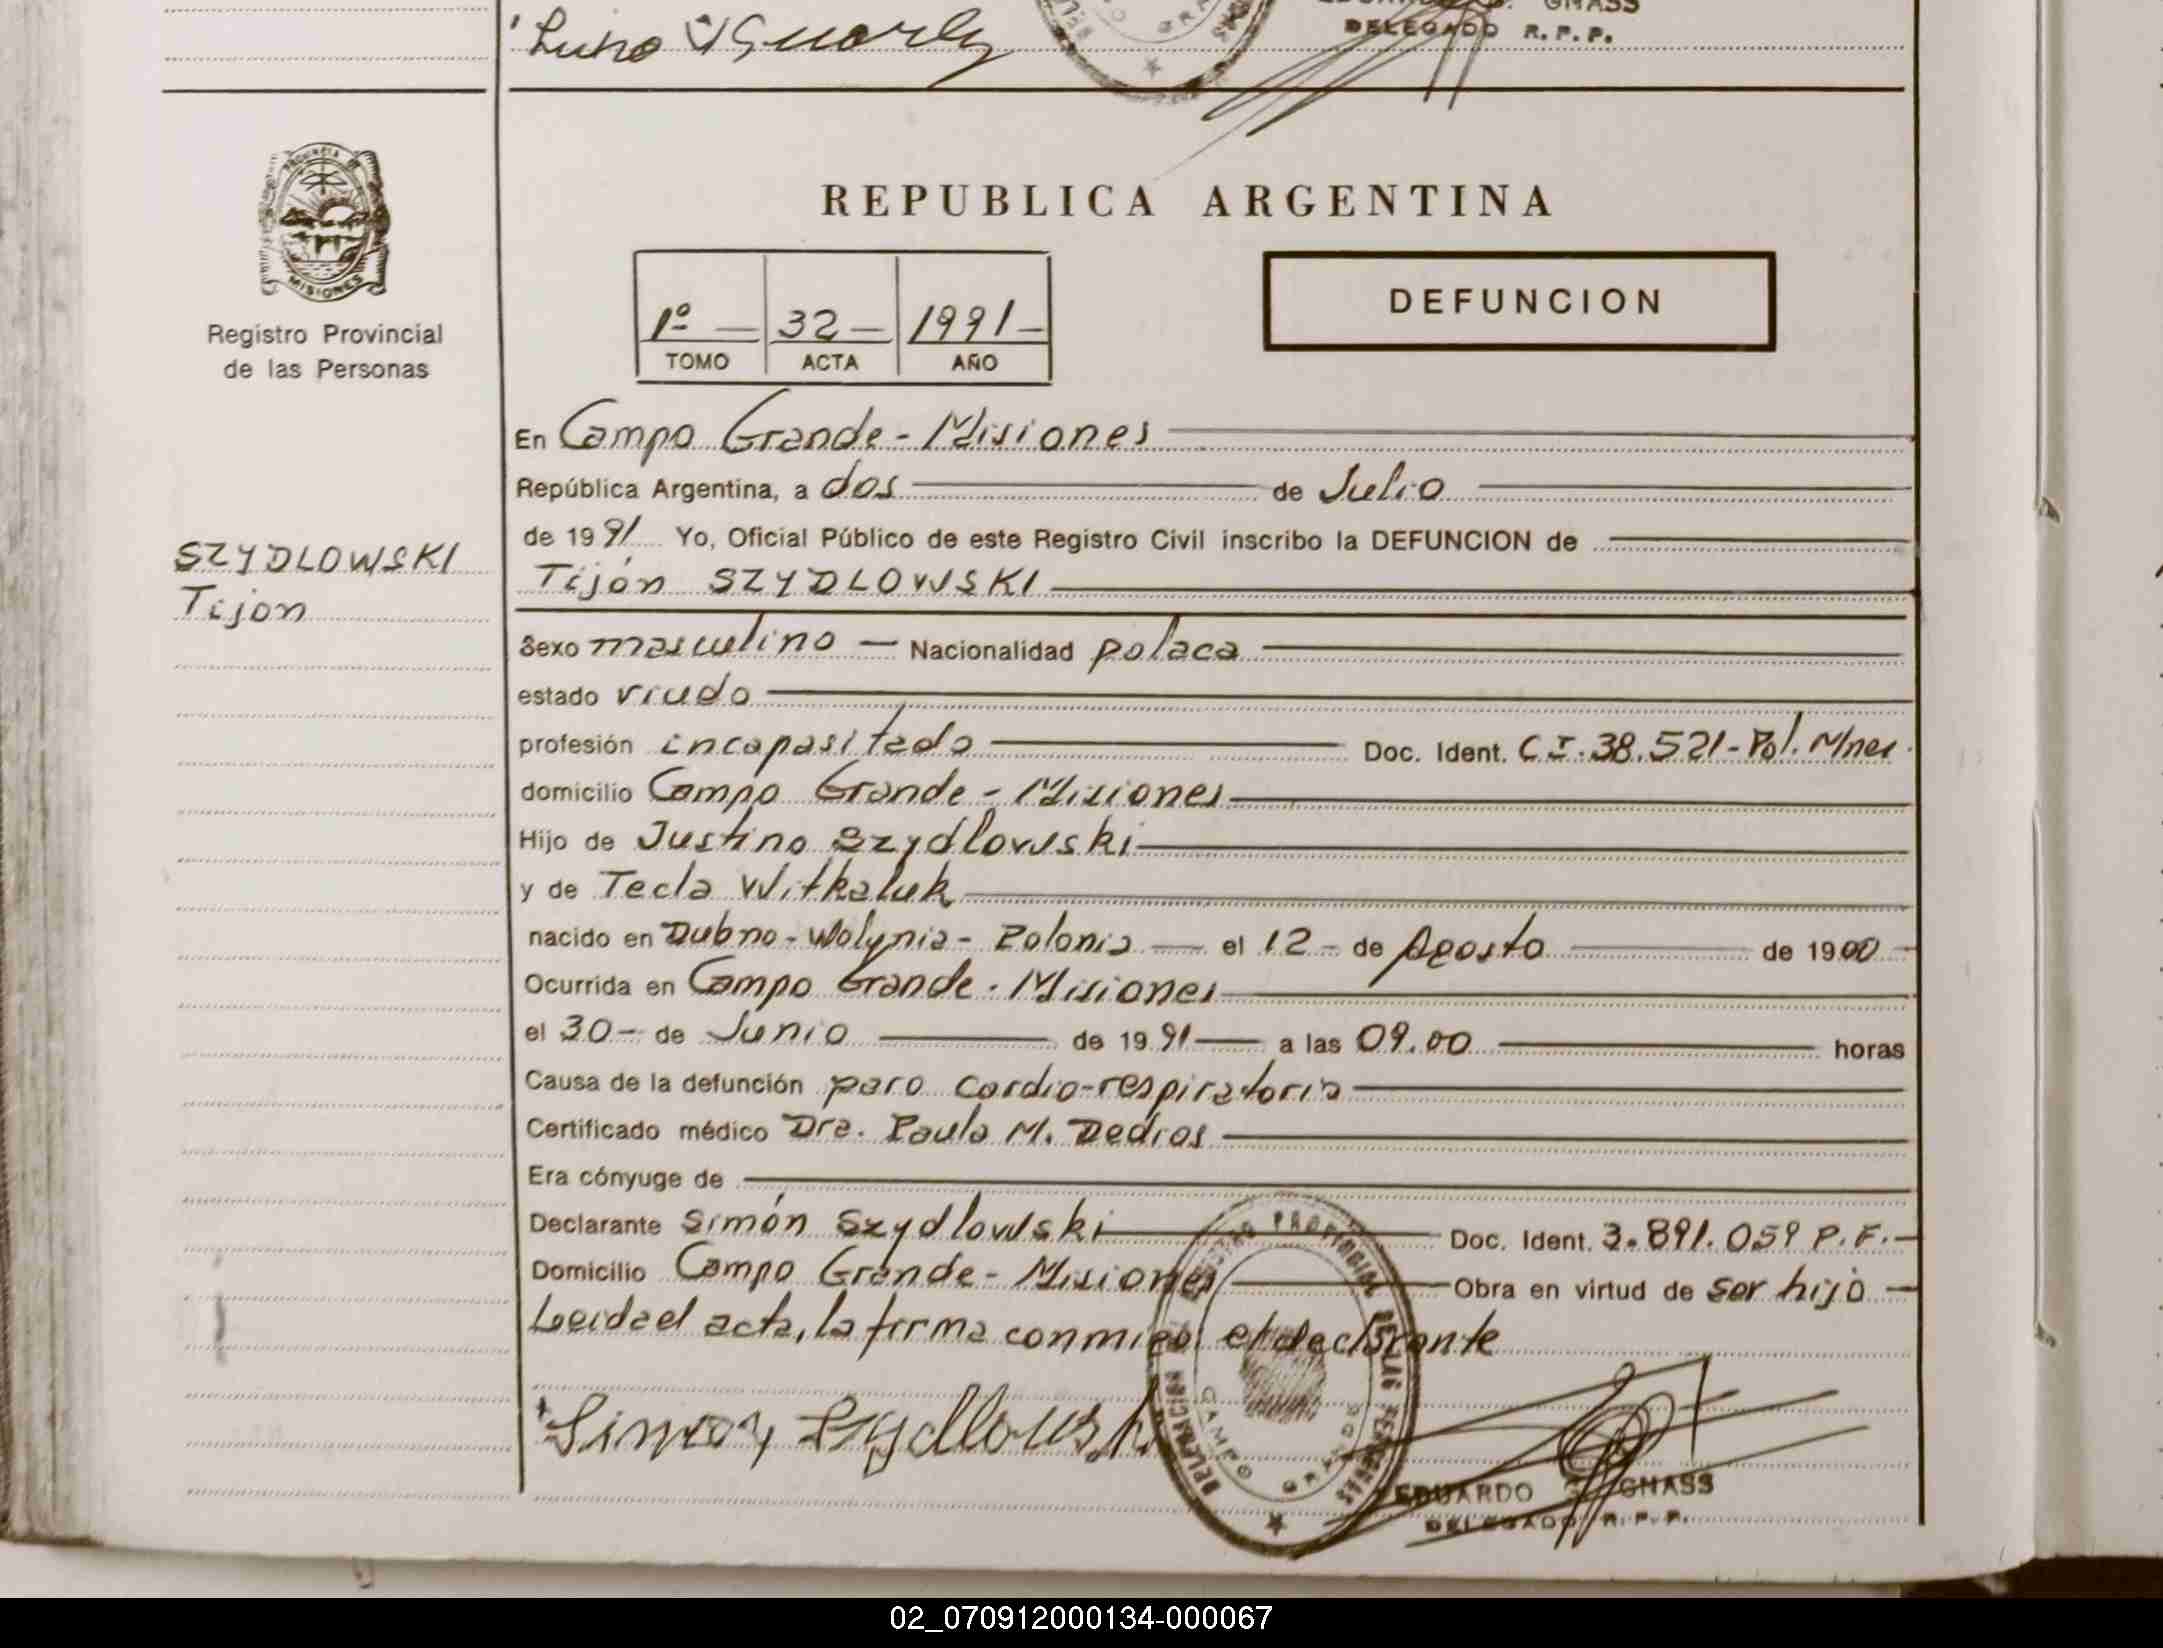 Lino
DELEGADO R.P.P.
PROVINCIA DE
MISIONES
Registro Provincial
de las Personas
REPUBLICA ARGENTINA
1º — 32 — 1991 —
TOMO ACTA AÑO
DEFUNCION
SZYDLOWSKI
Tijon
En Campo Grande - Misiones
República Argentina, a dos de Julio
de 1991 Yo, Oficial Público de este Registro Civil inscribo la DEFUNCION de
Tijón SZYDLOWSKI
Sexo masculino — Nacionalidad polaca
estado viudo
profesión incapasitado Doc. Ident. C.I. 38.521 - Pol. Mnes.
domicilio Campo Grande - Misiones
Hijo de Justino Szydlowski
y de Tecla Witkaluk
nacido en Dubno - Wolynia - Polonia — el 12 - de Agosto de 1900 -
Ocurrida en Campo Grande - Misiones
el 30 - de Junio de 1991 a las 09.00 horas
Causa de la defunción paro cardio-respiratorio
Certificado médico Dra. Paula M. Dedios
Era cónyuge de
Declarante Simón Szydlowski Doc. Ident. 3.891.059 P.F. -
Domicilio Campo Grande - Misiones Obra en virtud de ser hijo -
Leida el acta, la firma conmigo el declarante
Simon Szydlowski
REGISTRO PROVINCIAL DE LAS PERSONAS
DELEGACION
CAMPO GRANDE
EDUARDO GNASS
DELEGADO R.P.P.
02_070912000134-000067